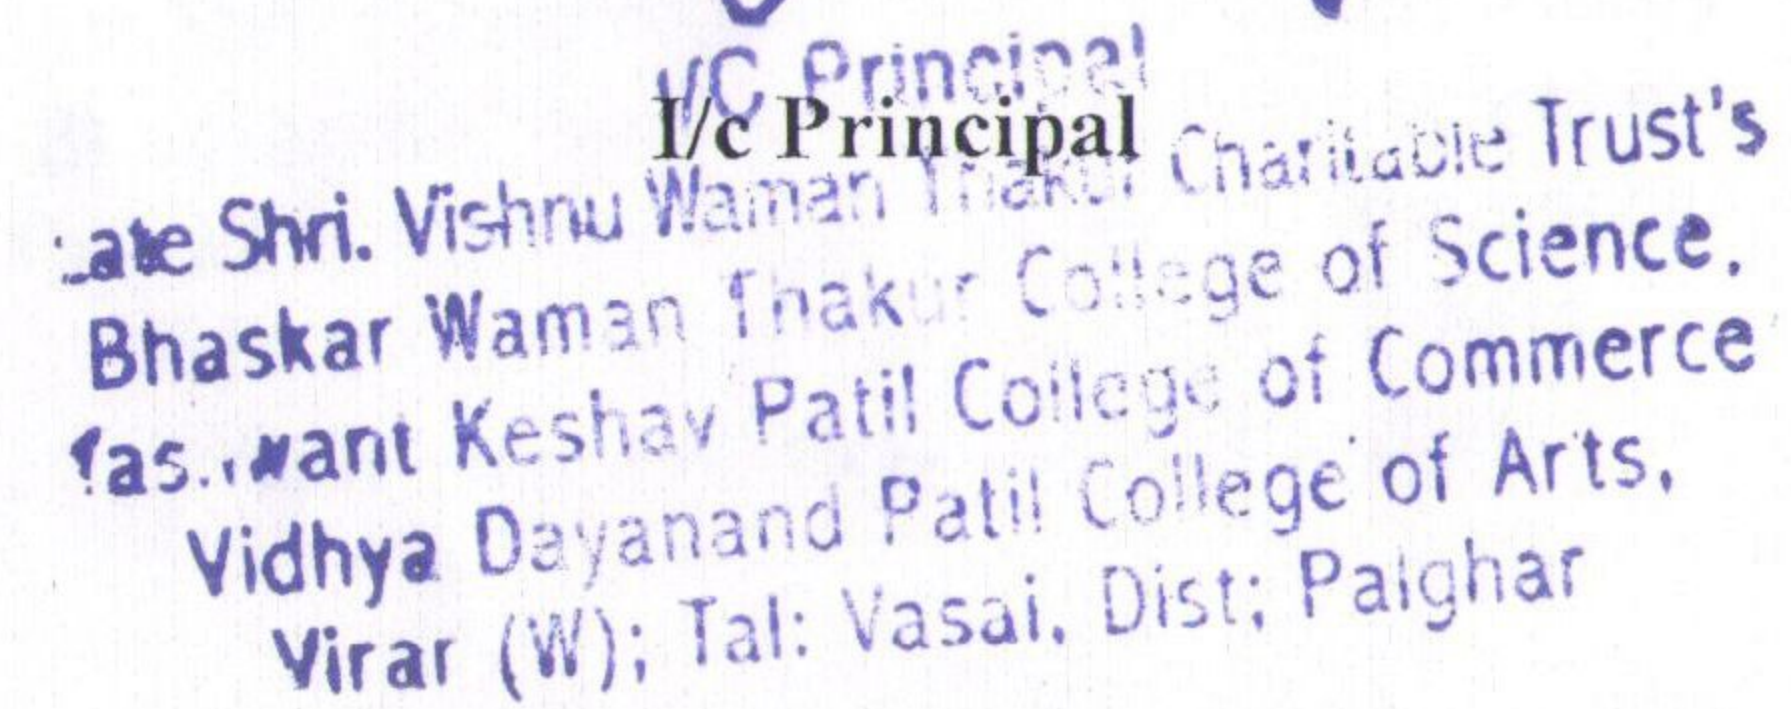 I/C Principal
I/c Principal
Late Shri. Vishnu Waman Thakur Charitable Trust's
Bhaskar Waman Thakur College of Science,
Keshav Patil College of Commerce
Vidhya Dayanand Patil College of Arts,
Virar (W); Tal: Vasai, Dist; Palghar